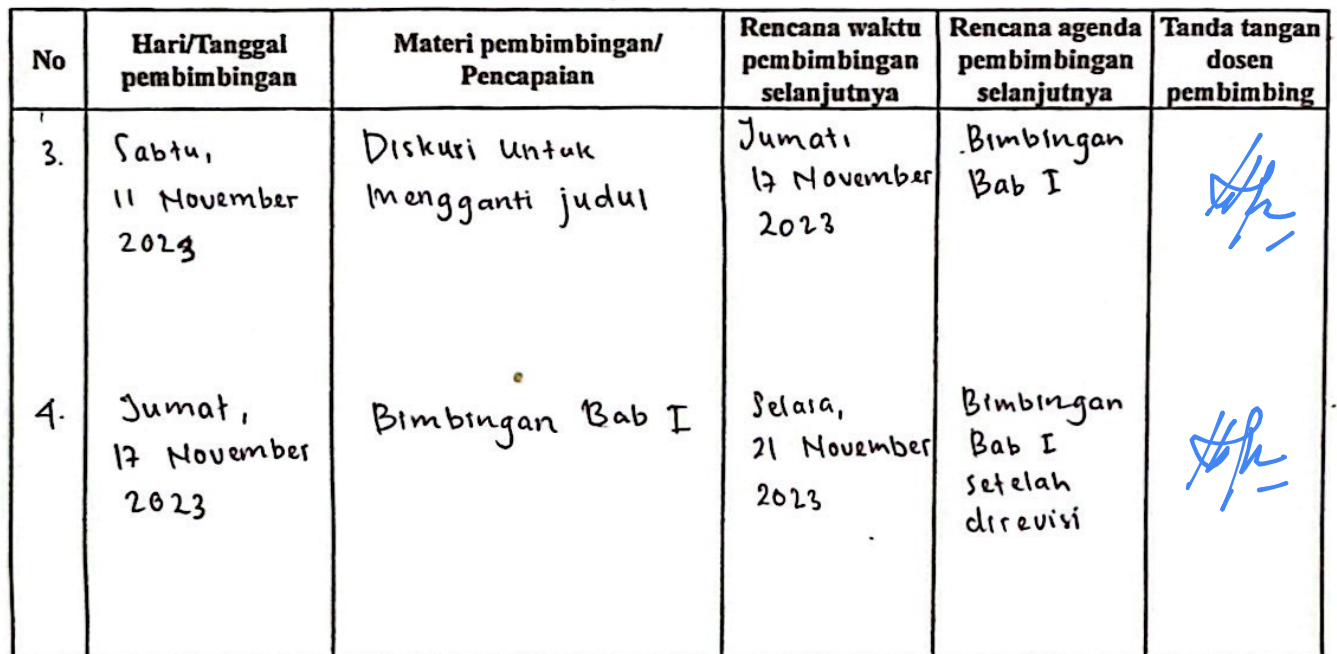 No
Hari/Tanggal
pembimbingan
Materi pembimbingan/
Pencapaian
Rencana waktu
pembimbingan
selanjutnya
Rencana agenda
pembimbingan
selanjutnya
Tanda tangan
dosen
pembimbing
3.
Sabtu,
11 November
2023
Diskusi untuk
mengganti judul
Jumat,
17 November
2023
Bimbingan
Bab I
4.
Jumat,
17 November
2023
Bimbingan Bab I
Selasa,
21 November
2023
Bimbingan
Bab I
setelah
direvisi